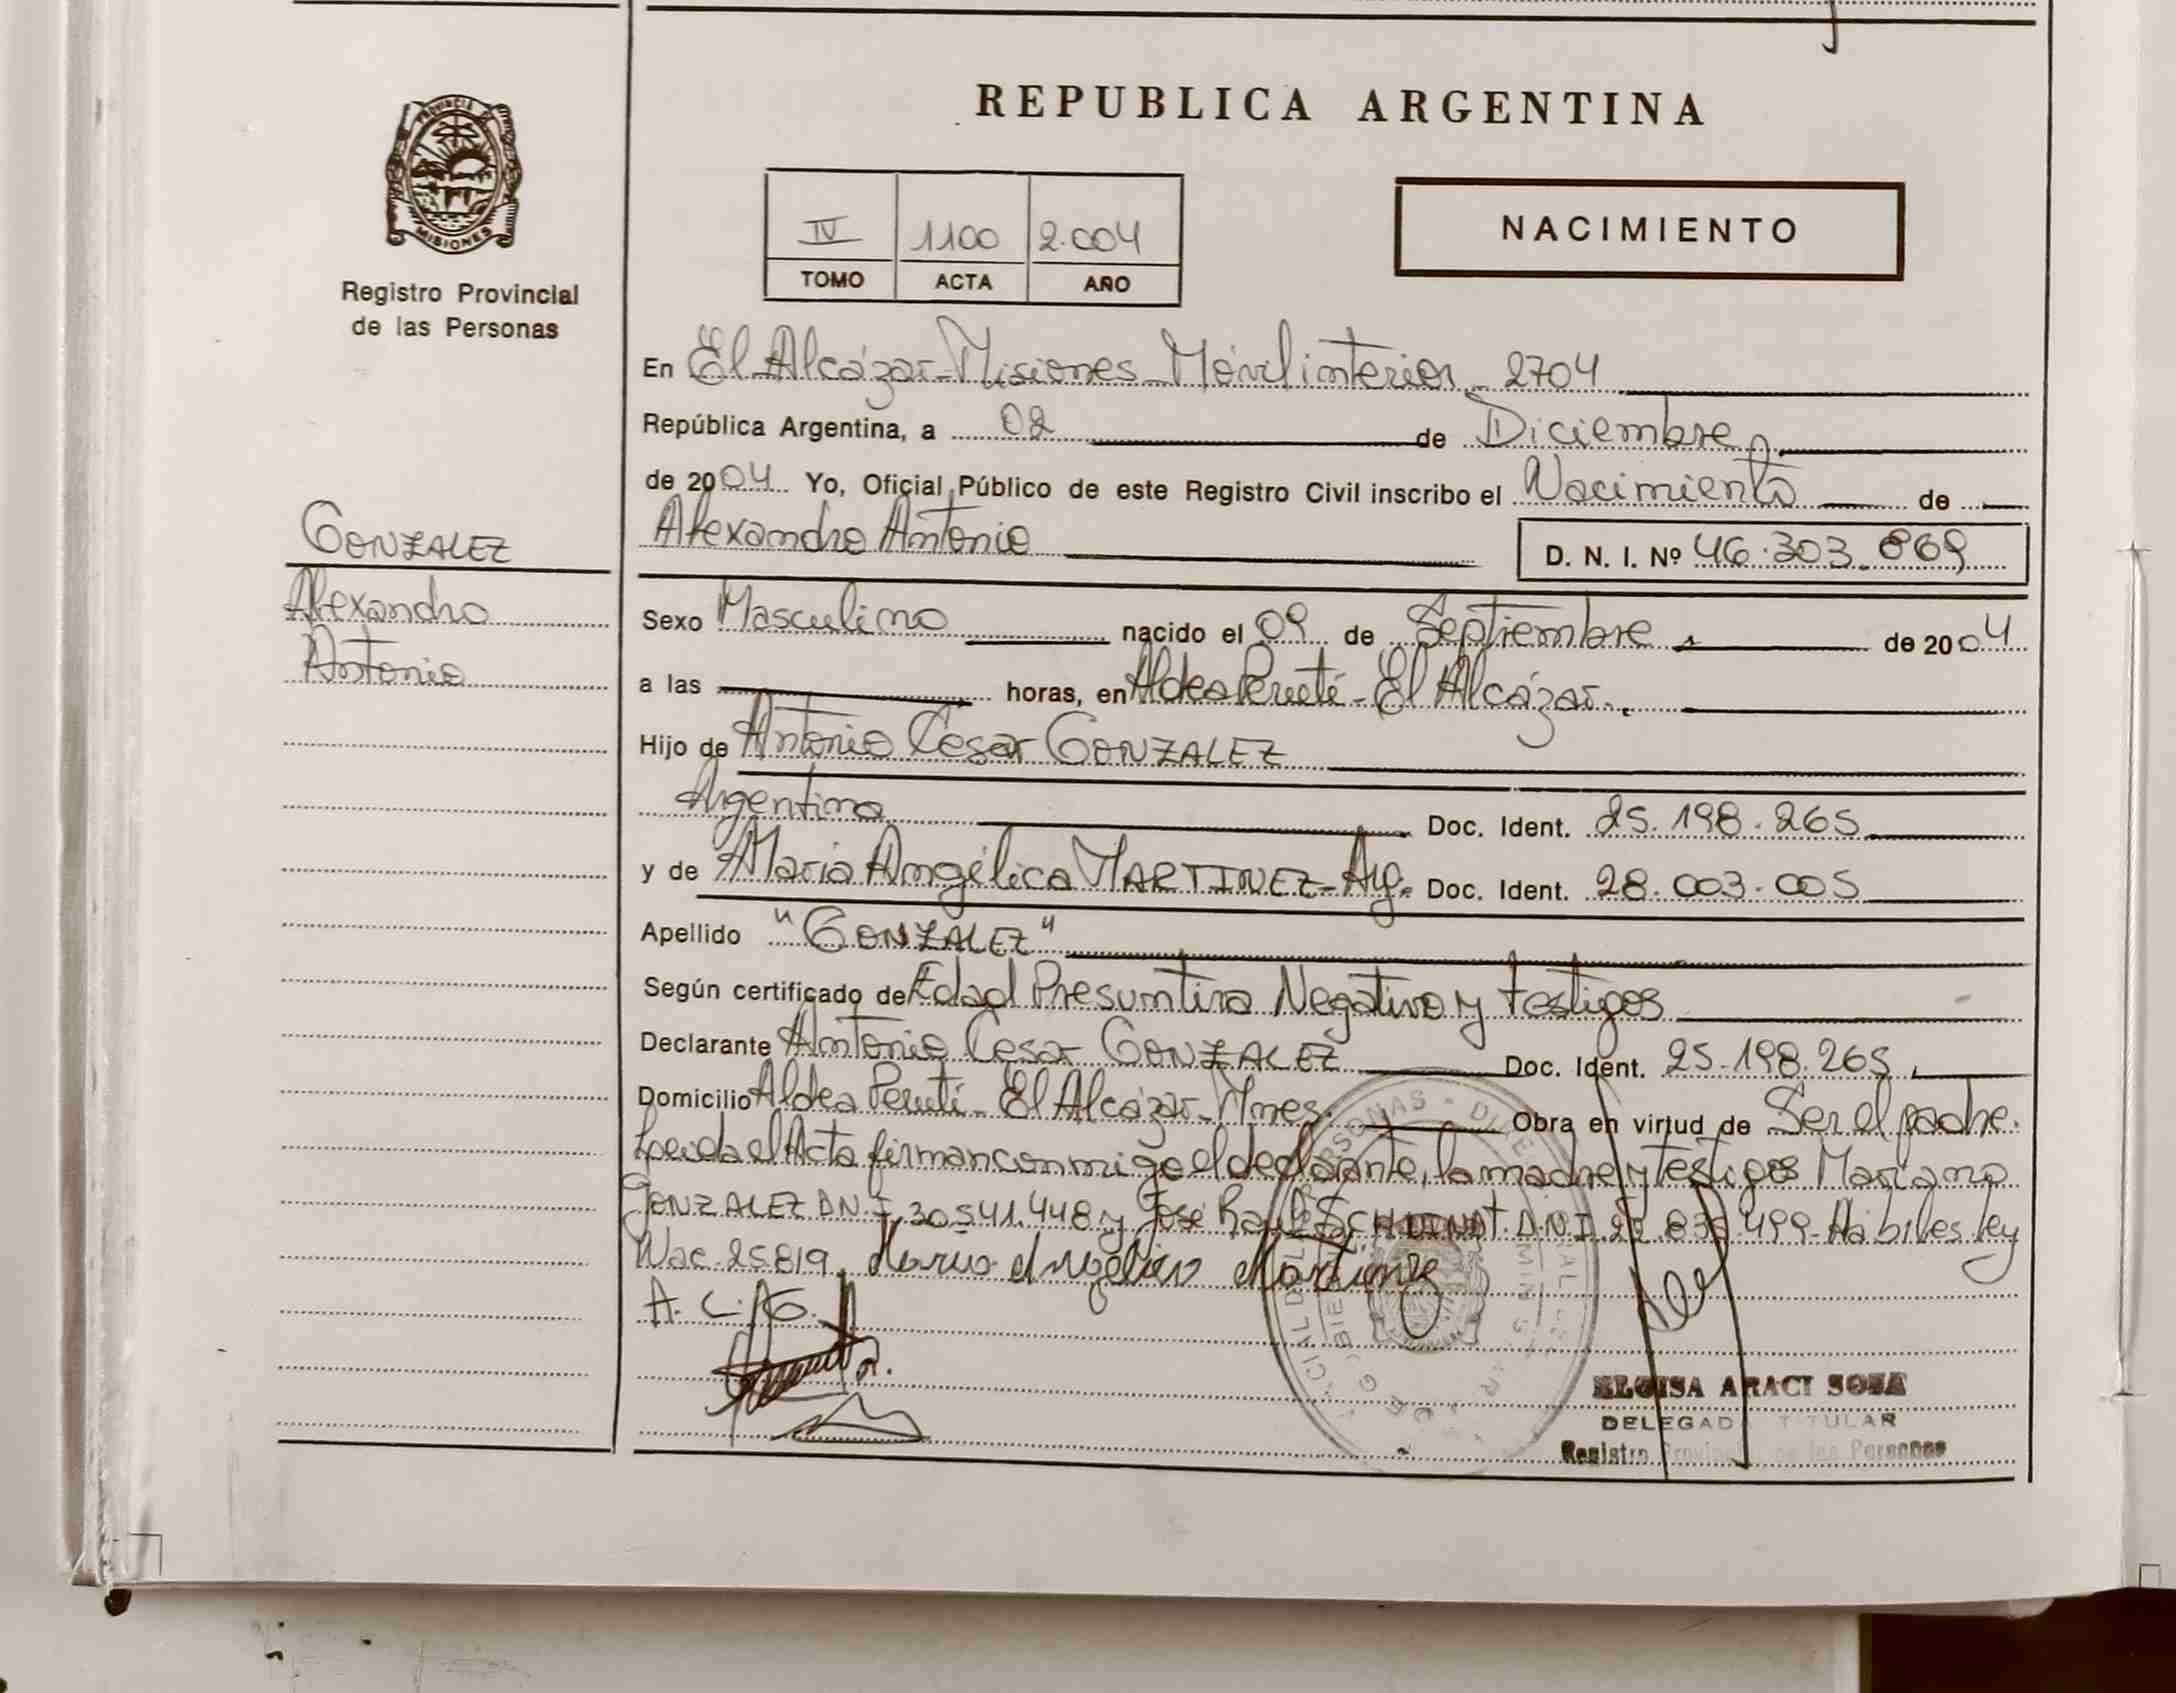 REPUBLICA ARGENTINA
PROVINCIA
MISIONES
Registro Provincial
de las Personas
IV 1100 2.004
TOMO ACTA AÑO
NACIMIENTO
En El Alcázar-Misiones-Móvil interior-2704
República Argentina, a 02 de Diciembre
de 2004 Yo, Oficial Público de este Registro Civil inscribo el Nacimiento de
Alexandro Antonio
D. N. I. Nº 46.303.869
GONZALEZ
Alexandro
Antonio
Sexo Masculino nacido el 09 de Septiembre de 2004
a las horas, en Aldea Perutí-El Alcázar.
Hijo de Antonio Cesar GONZALEZ
Argentino Doc. Ident. 25.198.265
y de María Angélica MARTINEZ-Arg. Doc. Ident. 28.003.005
Apellido "GONZALEZ"
Según certificado de Edad Presuntiva Negativo y testigos
Declarante Antonio Cesar GONZALEZ Doc. Ident. 25.198.265
Domicilio Aldea Perutí-El Alcázar-Mnes. Obra en virtud de Ser el padre.
Leida el Acta firman conmigo el declarante, la madre y testigos Mariano
GONZALEZ DNI 30.541.448 y José Raul D.N.I. 499-Hábiles ley
Nac. 25819. Maria Angelica Martinez
A. C. G.
ELOISA ARACI SOSA
DELEGADA TITULAR
Registro Provincial de las Personas